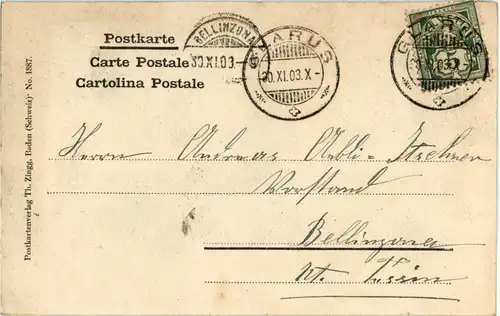 Postkarte
Carte Postale
Cartolina Postale
BELLINZONA
30.XI.03.
GLARUS
30.XI.03.X-
GLARUS
Herrn Andreas Aebli-
Vorstand
Bellinzona
Kt. Tessin
Postkartenverlag Th. Zingg, Baden (Schweiz) No. 1887.